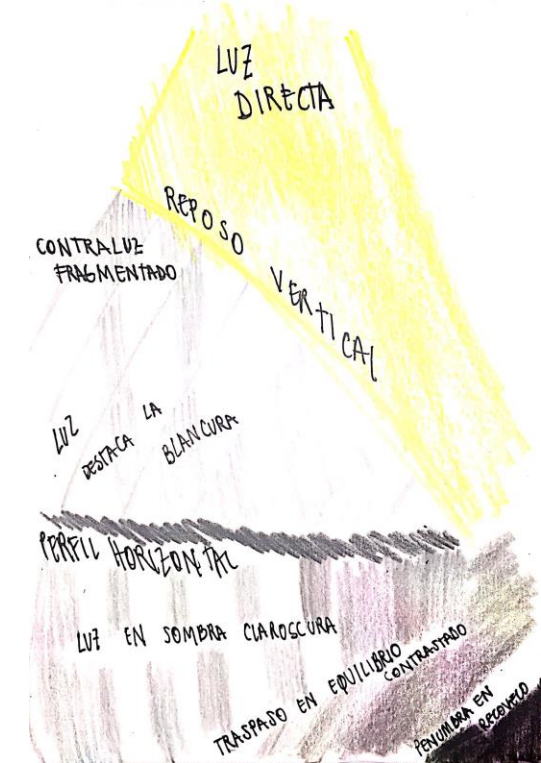 LUZ
DIRECTA
REPOSO VERTICAL
CONTRALUZ
FRAGMENTADO
LUZ
DESTACA LA
BLANCURA
PERFIL HORIZONTAL
LUZ EN SOMBRA CLAROSCURA
TRASPASO EN EQUILIBRIO
CONTRASTADO
PENUMBRA EN
RECOVECO